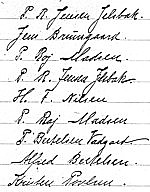 P. R. Jensen Jelsbak.
Jens Bruusgaard.
P. Røj Madsen.
P. R. Jensen Jelsbak
H. P. Nielsen
P. Røj Madsen
Bertelsen Vadgart
Alfred Bertelsen.
Kristen Poulsen.